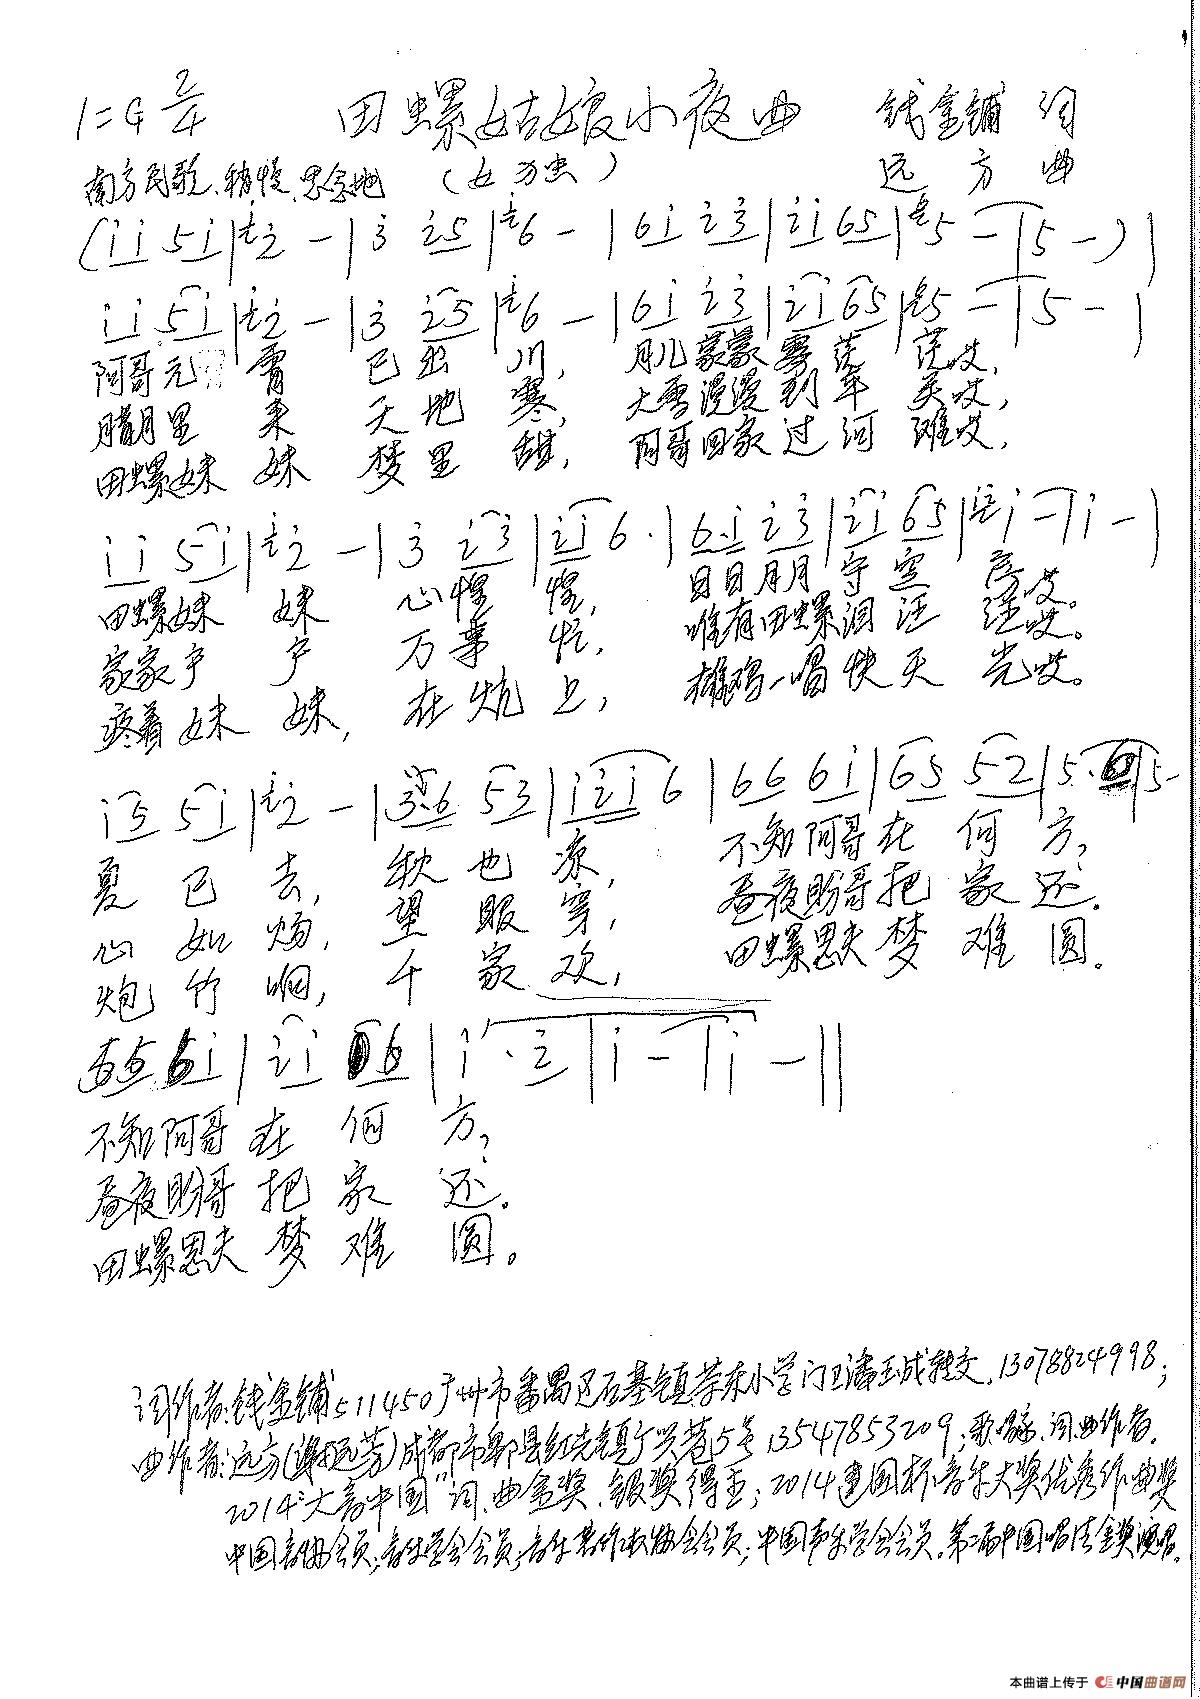 1=G 2/4 田螺姑娘小夜曲 钱金铺 词
南方民歌、稍慢、思念地 (女独) 远方 曲
(i i 5 i | i 2 - | 3 2 5 | i 6 - | 6 i 2 3 | 2 i 6 5 | 5 - | 5 -) |
i i 5 i | i 2 - | 3 2 5 | i 6 - | 6 i 2 3 | 2 i 6 5 | 5 - | 5 - |
阿哥元宵 已出川, 月儿蒙蒙雾茫茫哎,
腊月里来天地寒, 大雪漫漫到年关哎,
田螺妹妹梦里甜, 阿哥回家过河滩哎,
i i 5 i | i 2 - | 3 2 3 | 2 i 6 · | 6 · i 2 3 | 2 i 6 5 | i - | i - |
田螺妹妹心惶惶, 日日月月守空房哎。
家家户户万事忙, 唯有田螺泪汪汪哎。
疼着妹妹, 在炕上, 雄鸡一唱快天光哎。
i 5 5 i | i 2 - | 3 · 6 5 3 | i 2 i 6 | 6 6 6 i | 6 5 5 2 | 5 · 6 | 5 -
夏已去, 秋也凉, 不知阿哥在何方?
心如炀, 望眼穿, 昼夜盼哥把家还。
炮竹响, 千家欢, 田螺思夫梦难圆。
6 6 6 i | 2 i 6 | i · 2 | i - | i - ||
不知阿哥在何方?
昼夜盼哥把家还。
田螺思夫梦难圆。
词作者:钱金铺511450广州市番禺区石基镇茶东小学门卫潘玉成转交.13078824998;
曲作者:远方(谢远芳)成都市郫县红光镇广兴巷5号13547853209;歌唱家.词.曲作者.
2014"大音中国"词.曲金奖.银奖得主;2014建国杯音乐大奖优秀作曲奖
中国音协会员;音乐学会会员;音乐著作权协会会员;中国声乐学会会员.第二届中国唱法金奖演唱.
本曲谱上传于 中国曲谱网